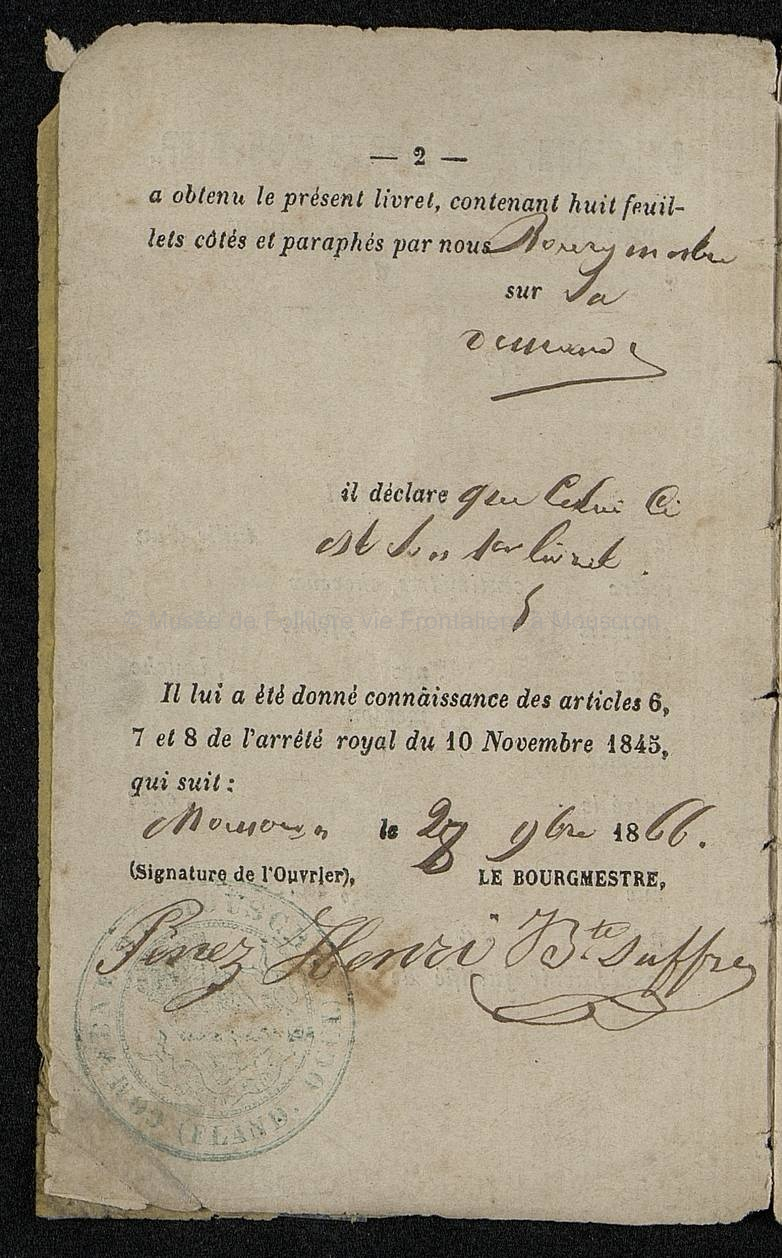 — 2 —
a obtenu le présent livret, contenant huit feuil-
lets côtés et paraphés par nous Bourgmestre
sur Sa
demande
il déclare que Celui Ci
est son 1er livret.
© Musée de Folklore vie Frontalière à Mouscron
Il lui a été donné connaissance des articles 6,
7 et 8 de l'arrêté royal du 10 Novembre 1845,
qui suit :
Mouscron le 28 9bre 1866.
(Signature de l'Ouvrier), LE BOURGMESTRE,
Pinez Henri Bte
COMM FLAND. OCCID